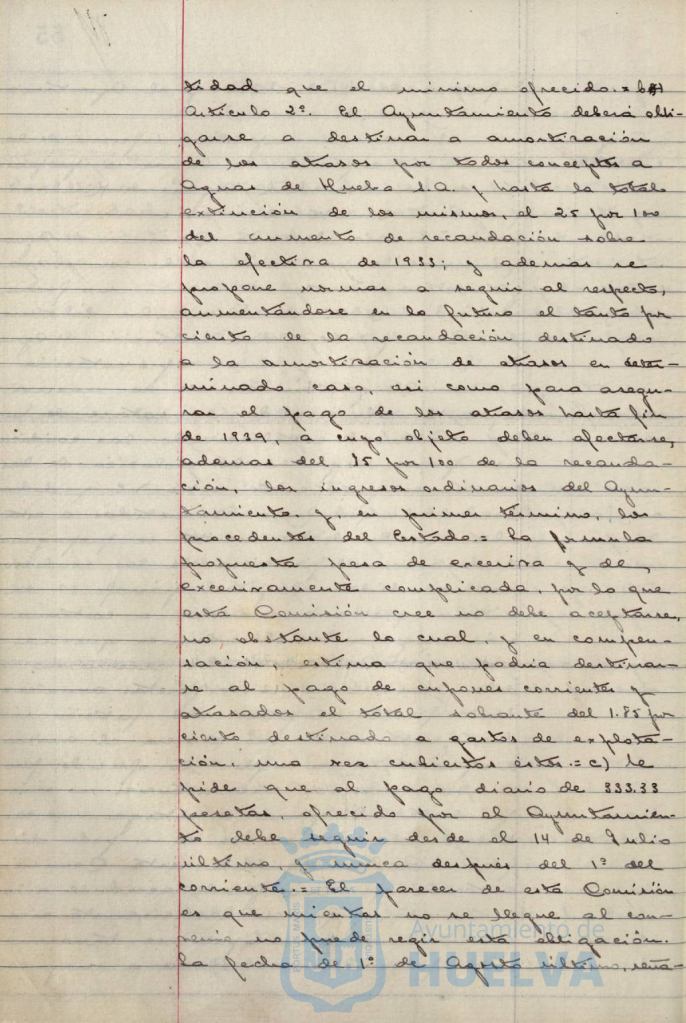 tidad que el minimo ofrecido.= b)
Artículo 2º. El Ayuntamiento deberá obli-
garse a destinar a amortización
de los atrasos por todos conceptos a
Aguas de Huelva S.A. y hasta la total
extinción de los mismos, el 25 por 100
del aumento de recaudación sobre
la efectiva de 1933; y ademas se
propone normas a seguir al respecto,
aumentándose en lo futuro el tanto por
ciento de la recaudación destinado
a la amortización de atrasos en deter-
minado caso, asi como para asegu-
rar el pago de los atrasos hasta fin
de 1939, a cuyo objeto deben afectarse,
ademas del 75 por 100 de la recauda-
ción, los ingresos ordinarios del Ayun-
tamiento. y, en primer término, los
procedentes del Estado.= La formula
propuesta pesa de excesiva y de
excesivamente complicada, por lo que
esta Comisión cree no debe aceptarse,
no obstante lo cual, y en compen-
sación, estima que podria destinar-
se al pago de cupones corrientes y
atrasados el total sobrante del 1.75 por
ciento destinado a gastos de explota-
ción, una vez cubiertos éstos.= c) Se
pide que al pago diario de 333.33
pesetas, ofrecido por el Ayuntamien-
to debe seguir desde el 14 de Julio
último, y nunca después del 1º del
corriente.= El parecer de esta Comisión
es que mientras no se llegue al con-
venio no puede regir esta obligación.
La fecha de 1º de Agosto último, seña-
Ayuntamiento de
HUELVA